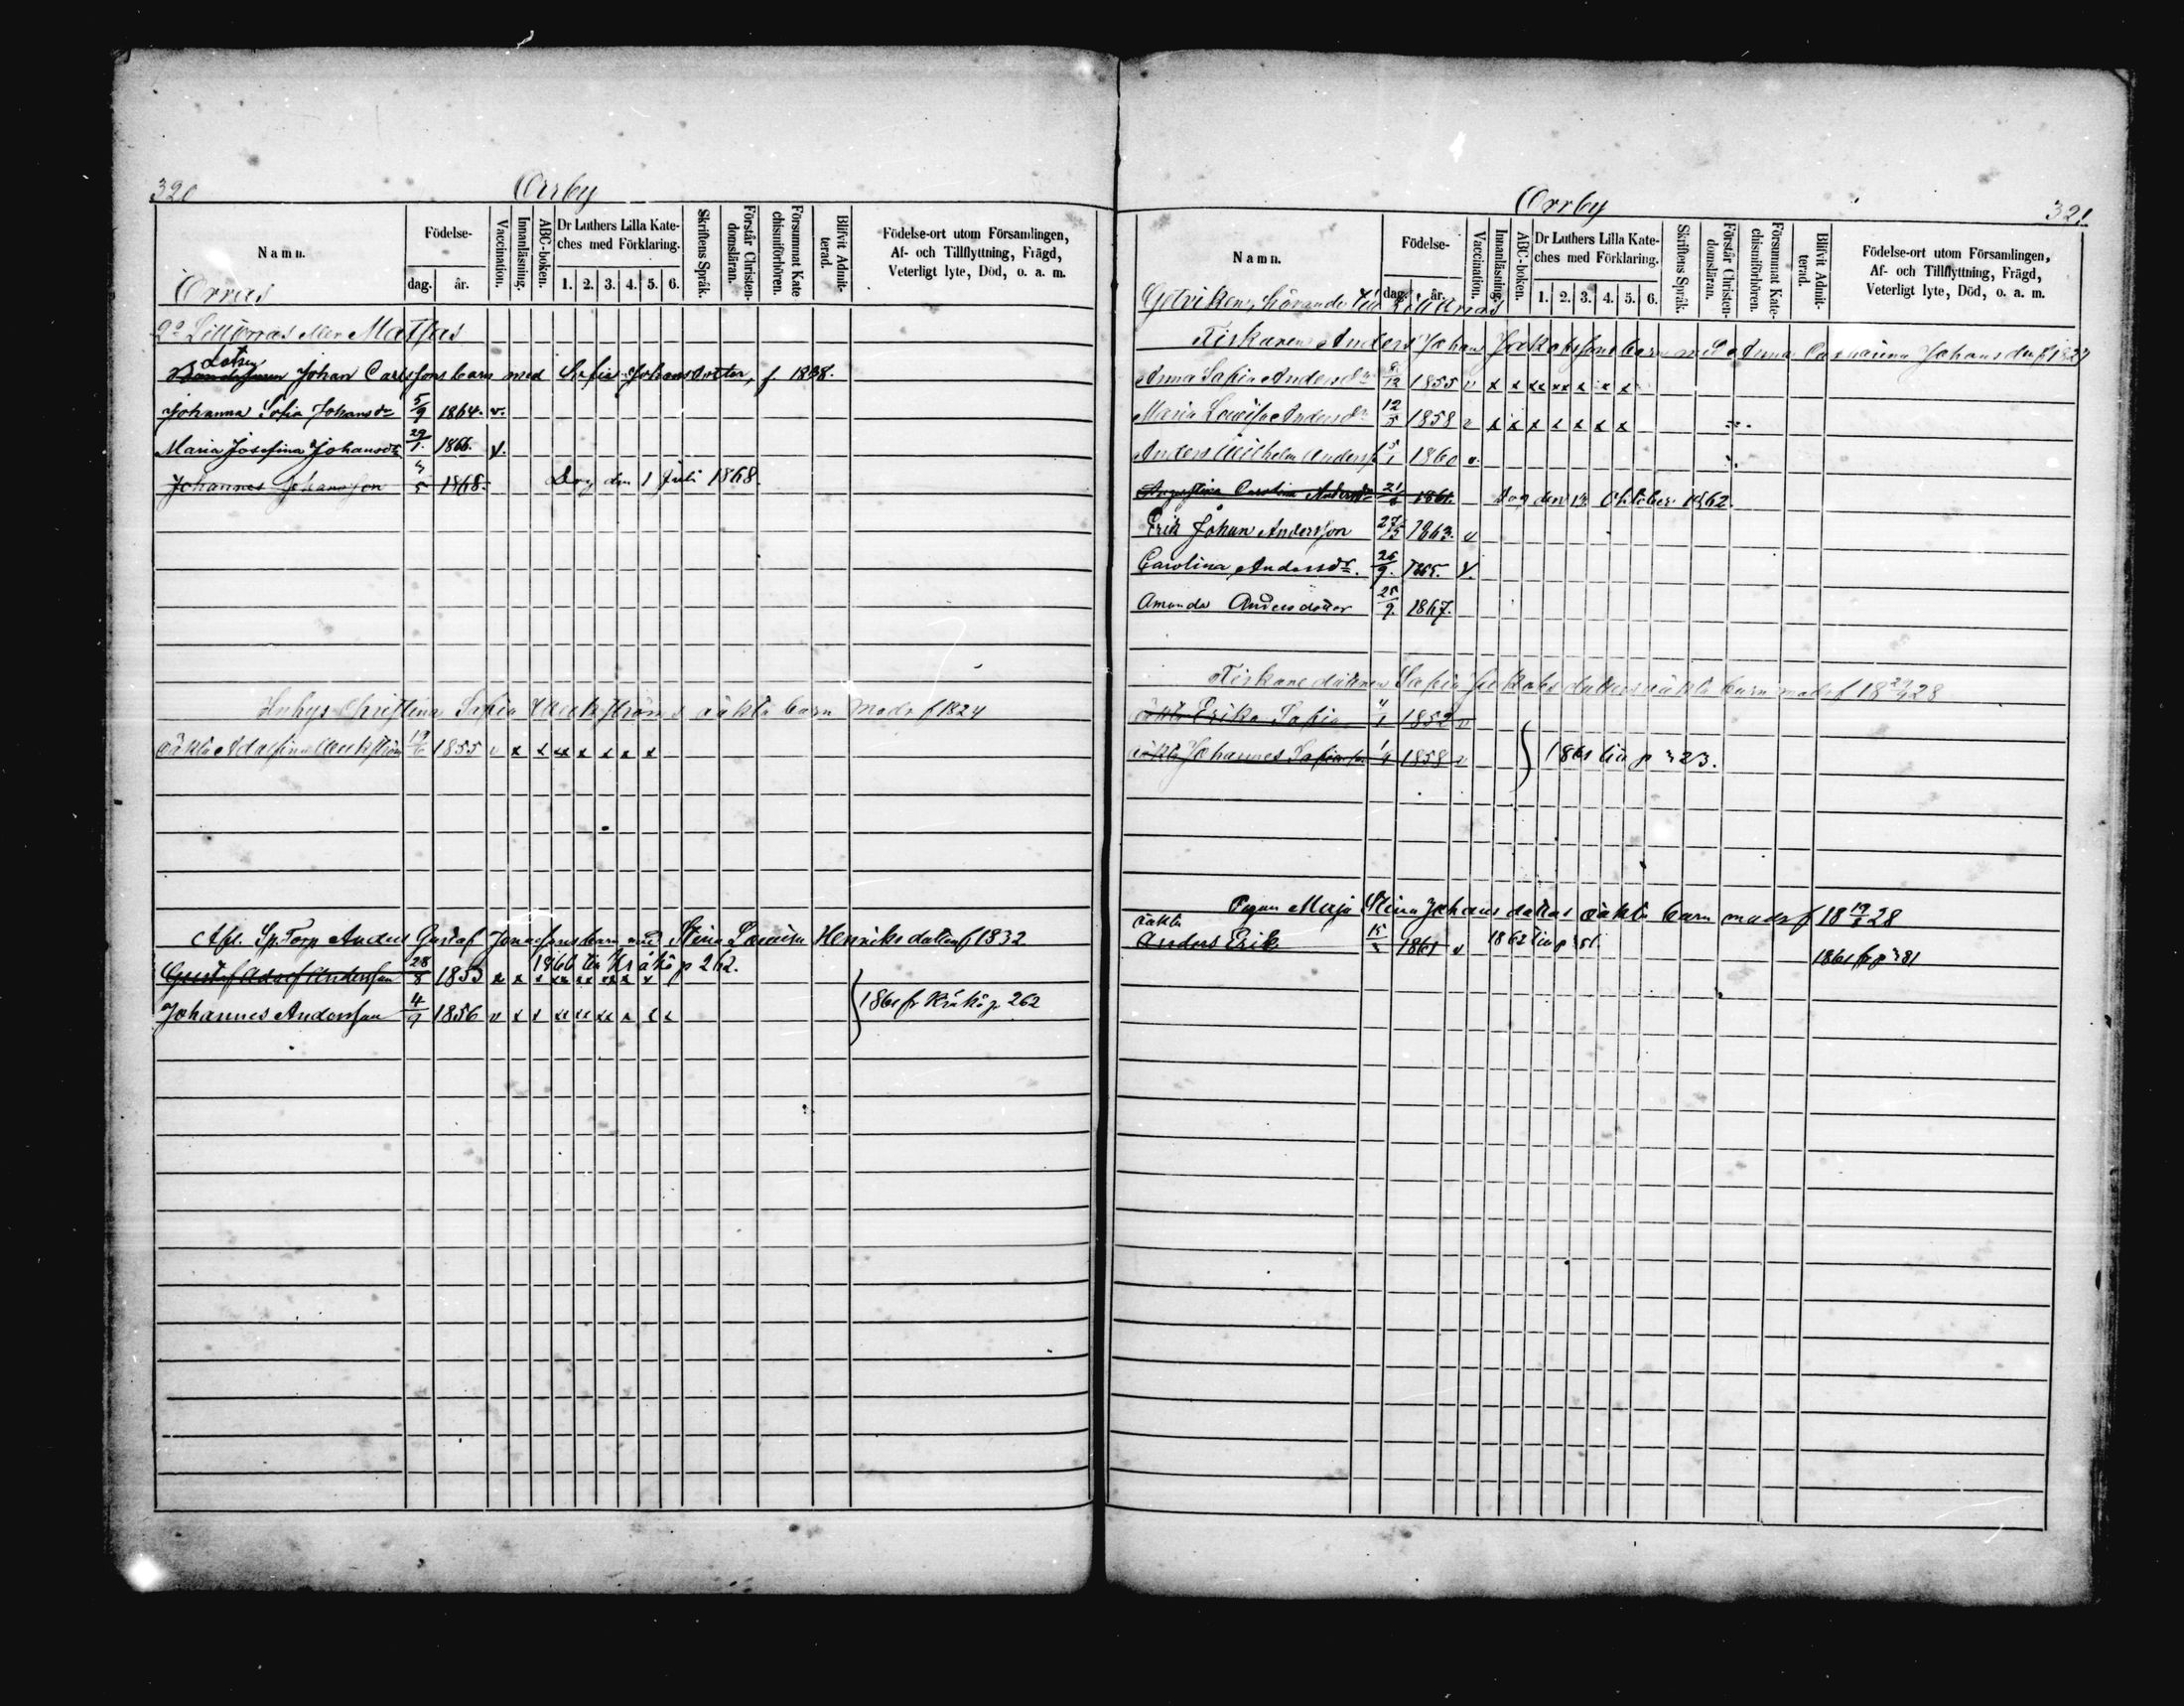 320
Orrby
Namn.
Födelse-
dag.
år.
Vaccination.
Innanläsning.
ABC-boken.
Dr Luthers Lilla Kate-
ches med Förklaring.
1. 2. 3. 4. 5. 6.
Skriftens Språk.
Förstår Christen-
domsläran.
Försummat Kate
chismiförhören.
Blifvit Admit-
terad.
Födelse-ort utom Församlingen,
Af- och Tillflyttning, Frägd,
Veterligt lyte, Död, o. a. m.
Orrnäs
Lotsen
Johan Carlssons barn med Sofia Johansdotter, f. 1838.
Johanna Sofia Johansdr 5/9 1864. v.
Maria Josefina Johansdr 29/1. 1866. v.
Johannes Johansson 4/5 1868. Dog den 1 Juli 1868.
Inhys Christina Sofia oäkta barn Modr f 1824
oäkta 19/6 1855 v x x xx x x x x
Afsk. Sp. Torp Anders Gustaf Jonassons barn med Stina Lovisa Henriksdotter f 1832
1866 till Kråkö p 262.
Gustaf Adolf Andersson 28/8 1853
Johannes Andersson 4/9 1856 v x x xx xx xx x x x
1861 fr Kråkö p 262
Orrby
321
Namn.
Födelse-
dag. år.
Vaccination.
Innanläsning.
ABC-boken.
Dr Luthers Lilla Kate-
ches med Förklaring.
1. 2. 3. 4. 5. 6.
Skriftens Språk.
Förstår Christen-
domsläran.
Försummat Kate-
chismiförhören.
Blifvit Admit-
terad.
Födelse-ort utom Församlingen,
Af- och Tillflyttning, Frägd,
Veterligt lyte, Död, o. a. m.
Getviken, hörande till
Fiskaren Anders Johan Jakobssons barn med Anna Catharina Johansdr f 1827
Anna Sofia Andersdr 8/12 1855 v x x xx xx x x x
Maria Lovisa Andersdr 12/5 1858 v x x x x x x x
Anders Wilhelm Anderss 1860 v.
Augustina Carolina Andersdr 21/6 1861. Dog den 12 Oktober 1862.
Erik Johan Andersson 27/3 1863. v
Carolina Andersdr. 26/9. 1865. v.
Amanda Andersdotter 25/9. 1867.
Fiskaredottren Sofia Jakobsdotters oäkta barn modr f 28
oäkta Erika Sofia 4/1 1852 v
oäkta Johannes 1/4 1858 v
1861 till p 323.
Pigan Maja Stina Johansdotters oäkta barn modr f 18 19/8 28
oäkta
Anders Erik 1861 v
1861 fr p 381